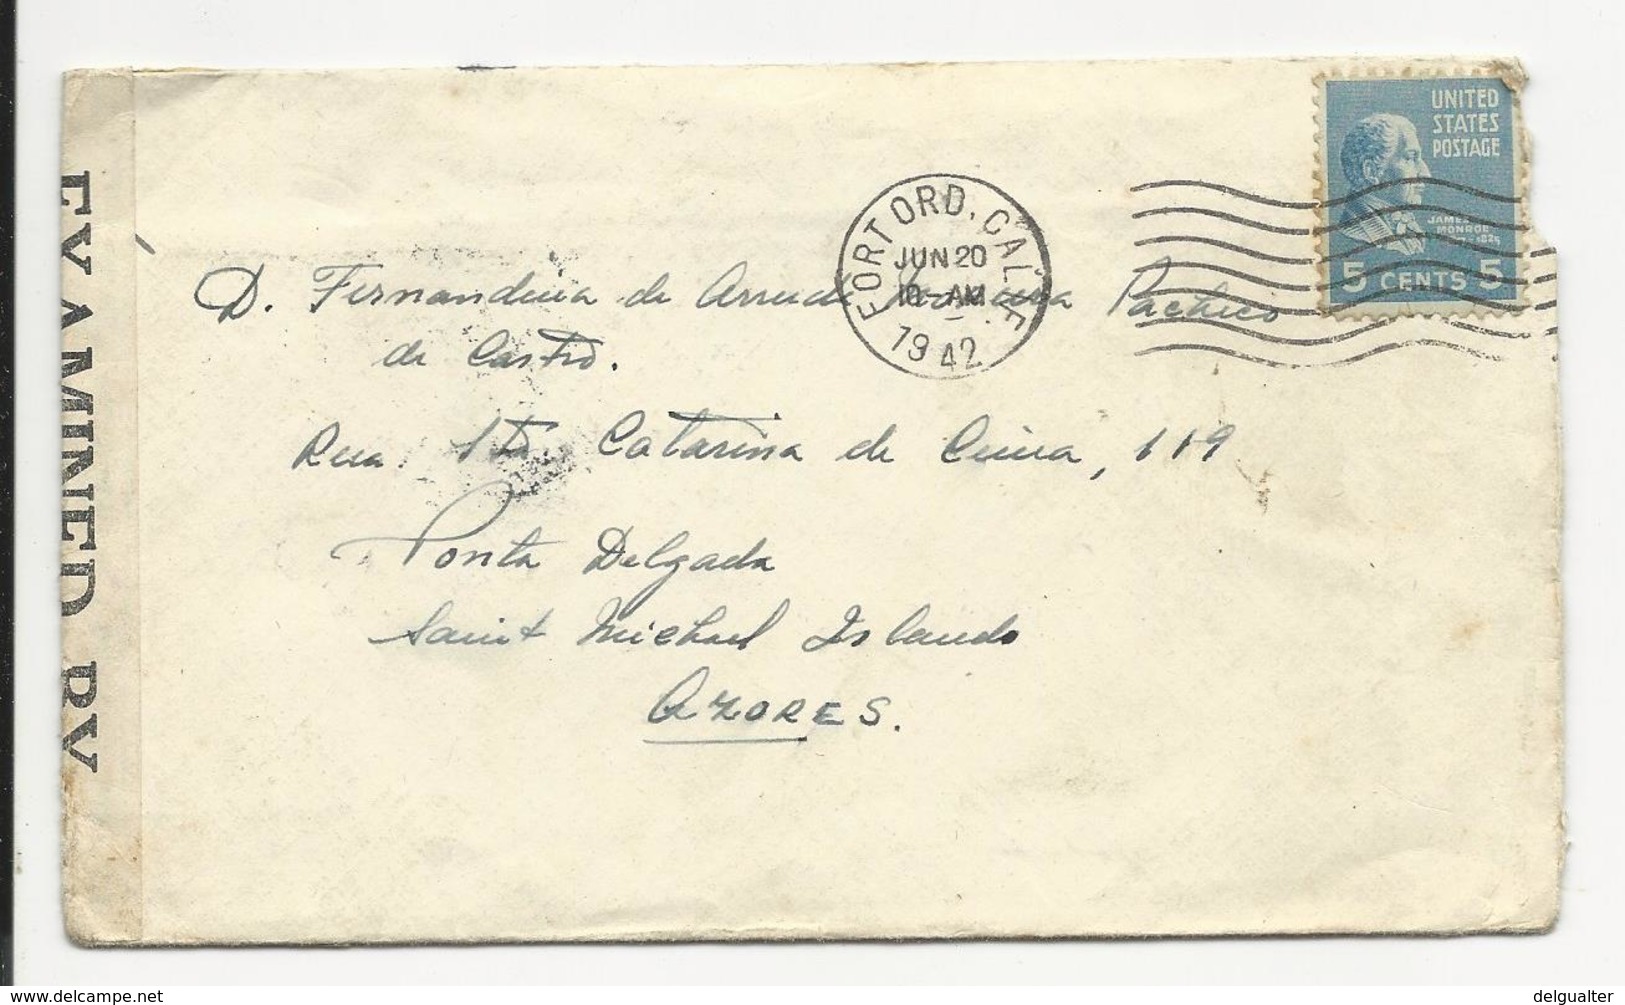 EXAMINED BY
UNITED
STATES
POSTAGE
JAMES
MONROE
1825
5 CENTS 5
FORT ORD, CALIF.
JUN 20
10 - AM
1942
D. Fernandina de Arruda Pacheco
de Castro.
Rua Sta Catarina de Cima, 119
Ponta Delgada
Saint Michael Islands
AZORES.
delgualter
delcampe.net